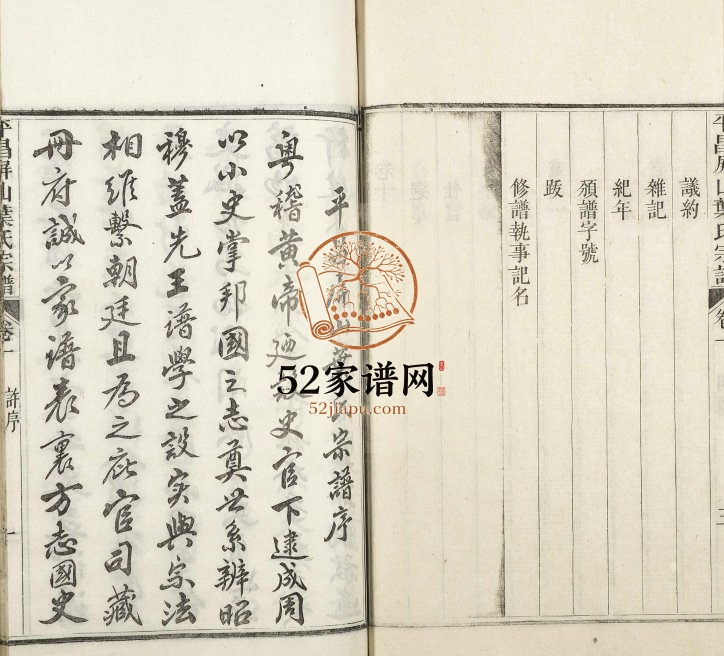 平昌屏山葉氏宗譜
卷一
三
議約
雜記
紀年
頒譜字號
跋
修譜執事記名
平昌屏山葉氏宗譜序
粵稽黃帝廼立史官下逮成周
以小史掌邦國之志奠世系辨昭
穆蓋先王譜學之設实與宗法
相維繫朝廷且為之庇官司藏
冊府誠以家譜表裏方志國史
平昌屏山葉氏宗譜
卷一
譜序
一
52家谱网
52jiapu.com